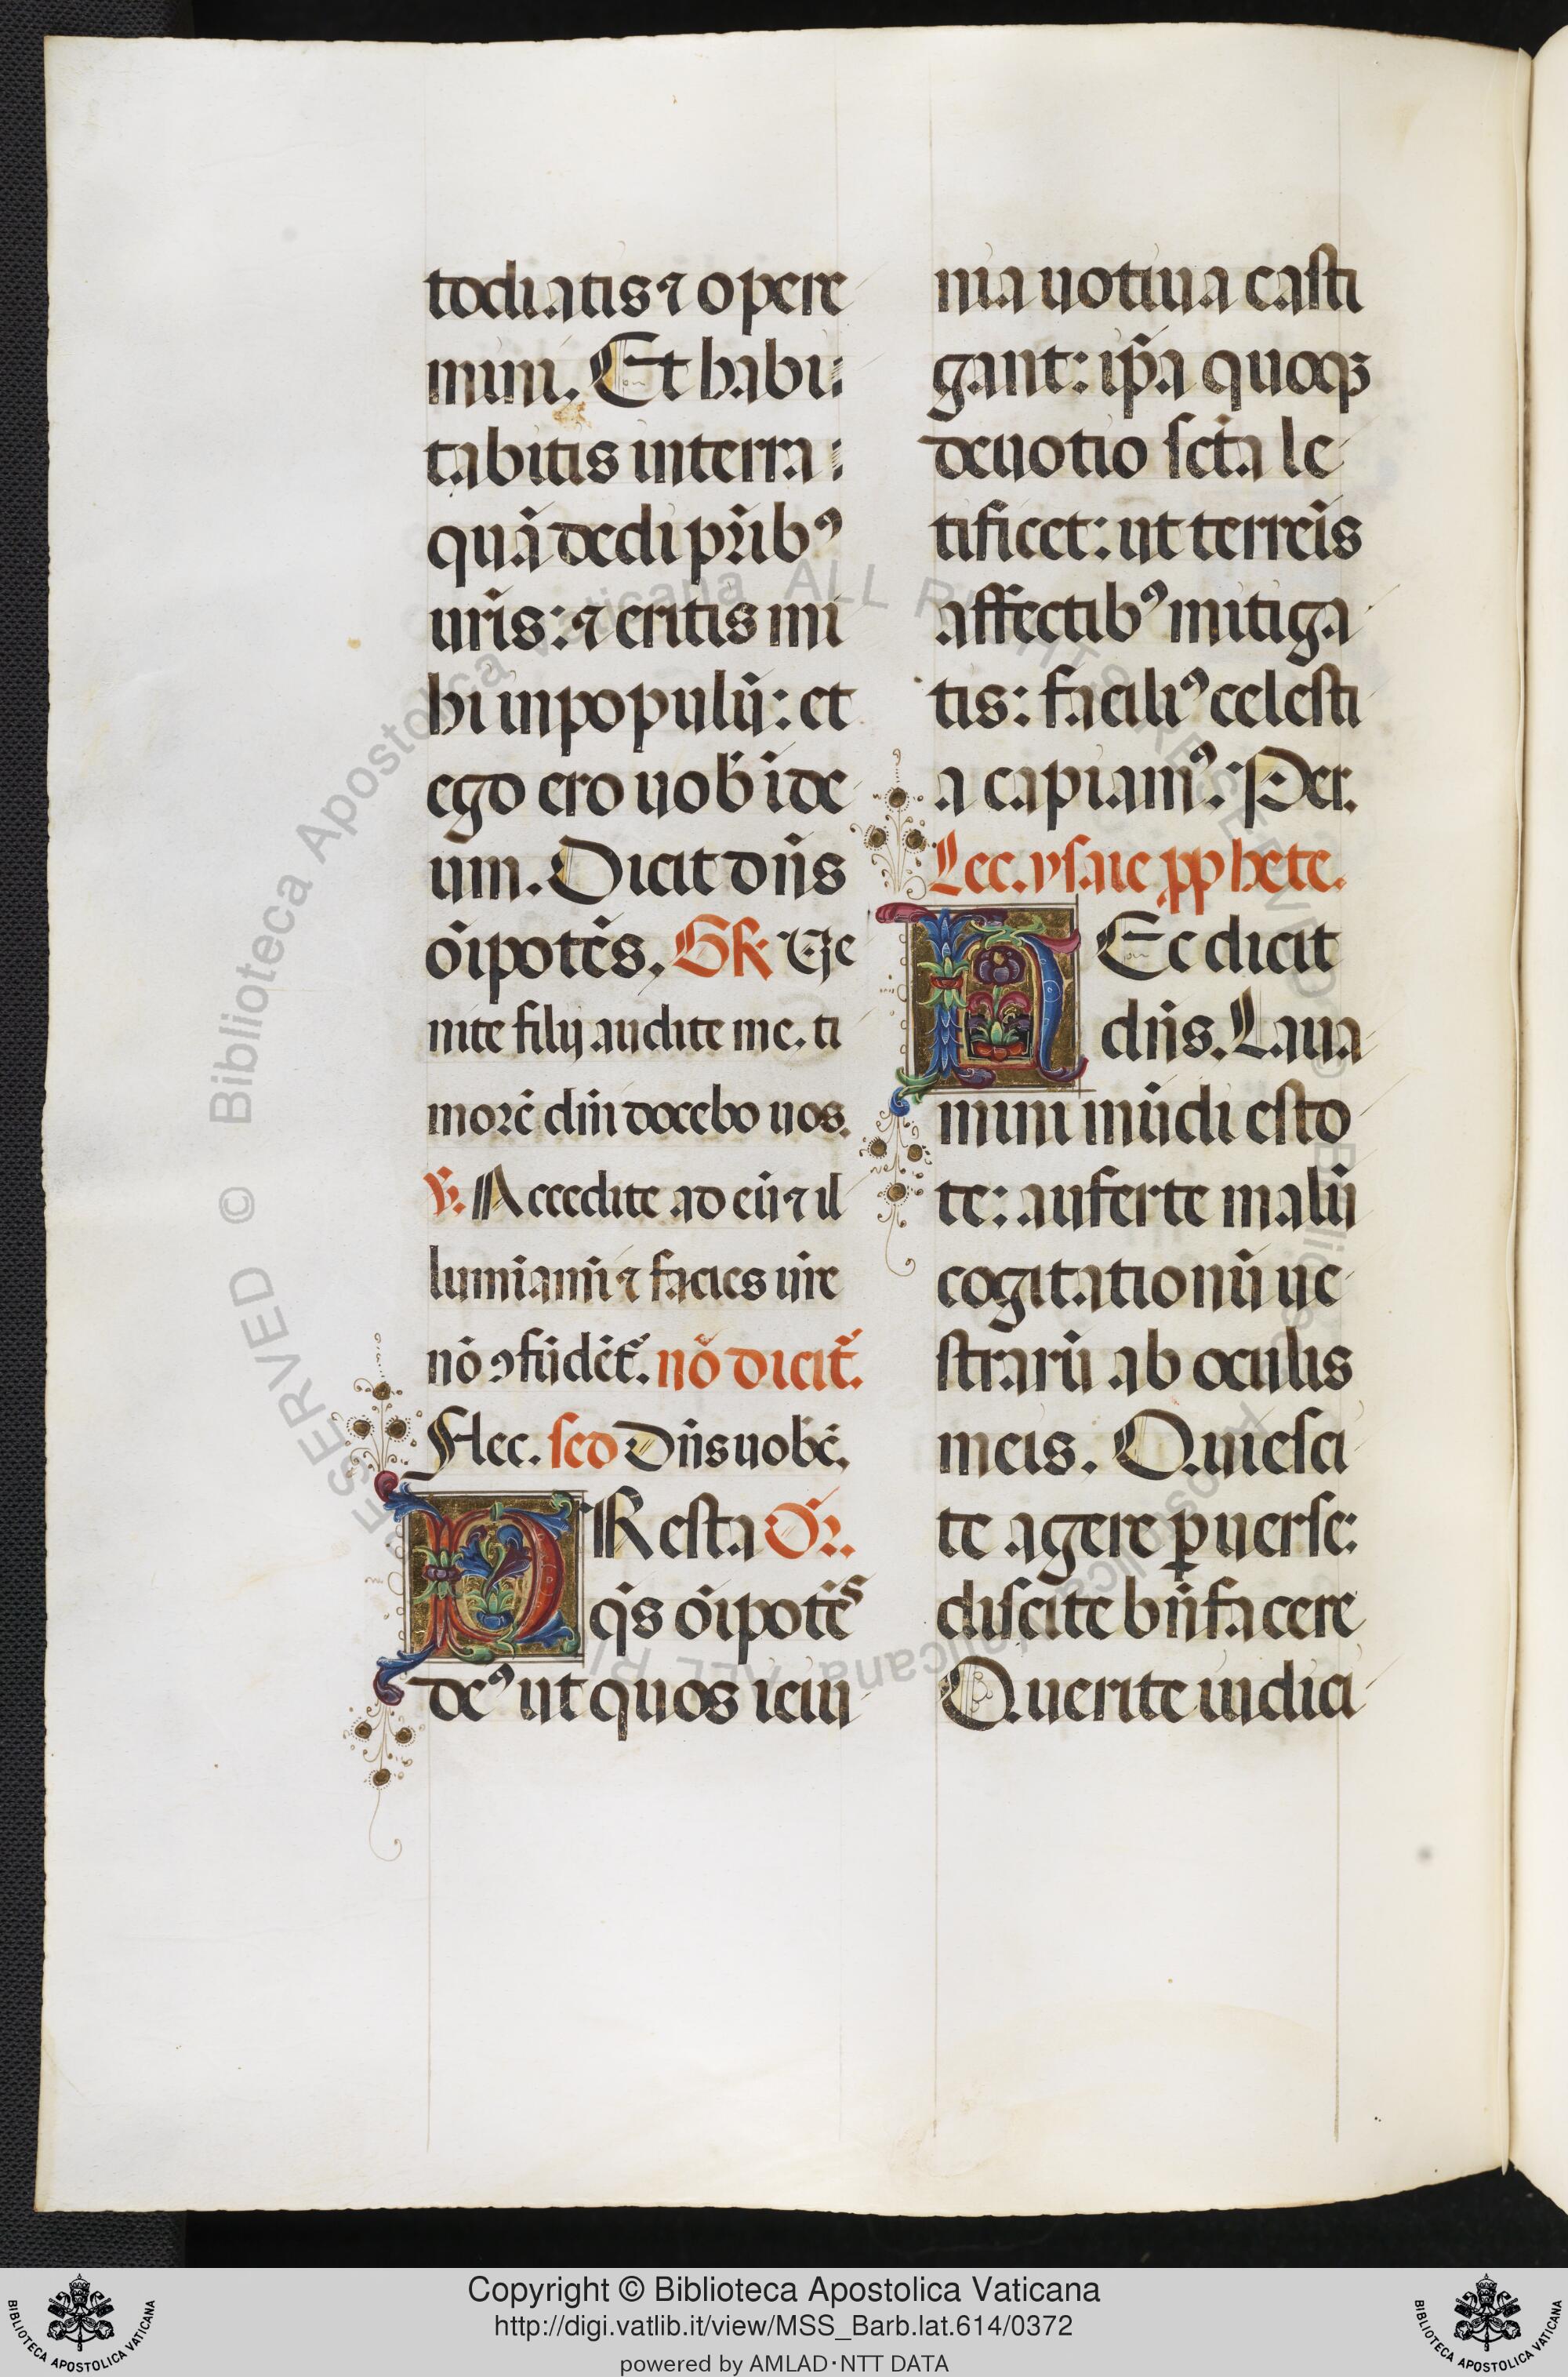 todiatis ⁊ opere
mini. Et habi
tabitis in terra:
quā dedi pr̄ib⁹
ur̄is: ⁊ eritis mi
hi in populū: et
ego ero uob̄ i de
um. Dicit dn̄s
oīpotēs. Gr̄. Ve
nite filij audite me. ti
morē dn̄i docebo uos.
℣. Accedite ad eū ⁊ il
lumīamī ⁊ facies ur̄e
nō ꝯfūdēt᷑. nō dicit᷑.
Flec. sed Dn̄s uobc̄.
PResta Or̄.
q̄s oīpotēs
de⁹ ut quos ieiu
nia uotiua casti
gant: ip̄a quoqꝫ
deuotio sct̄a le
tificet: ut terreīs
affectib⁹ mitiga
tis: facili⁹ celesti
a capiam⁹. Per.
Lec. ysaie ꝓphete.
HEc dicit
dn̄s. Laua
mini mūdi esto
te: auferte malū
cogitationū ue
strarū ab oculis
meis. Quiesci
te agere ꝑuerse:
discite bn̄facere
Querite iudici
Copyright © Biblioteca Apostolica Vaticana
http://digi.vatlib.it/view/MSS_Barb.lat.614/0372
powered by AMLAD·NTT DATA
BIBLIOTECA APOSTOLICA VATICANA
BIBLIOTECA APOSTOLICA VATICANA
© Biblioteca Apostolica Vaticana ALL RIGHTS RESERVED